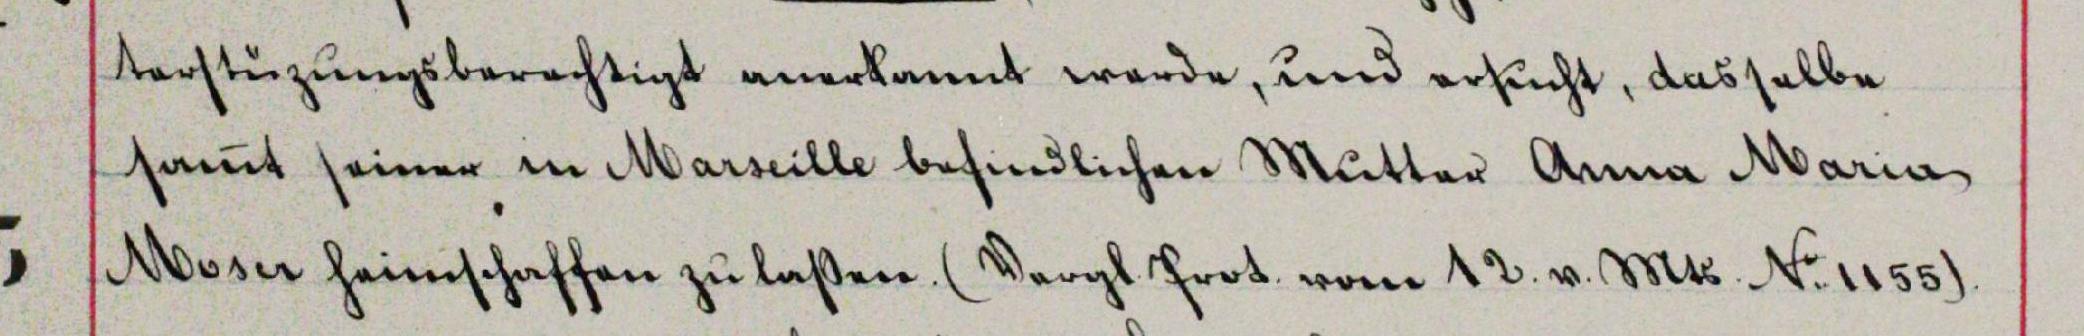 terstüzungsberechtigt anerkannt werde, und ersucht, dasselbe
sam̄t seiner in Marseille befindlichen Mutter Anna Maria
Moser heimschaffen zu laßen. (Vergl. Prot. vom 12. v. Mts. No. 1155).